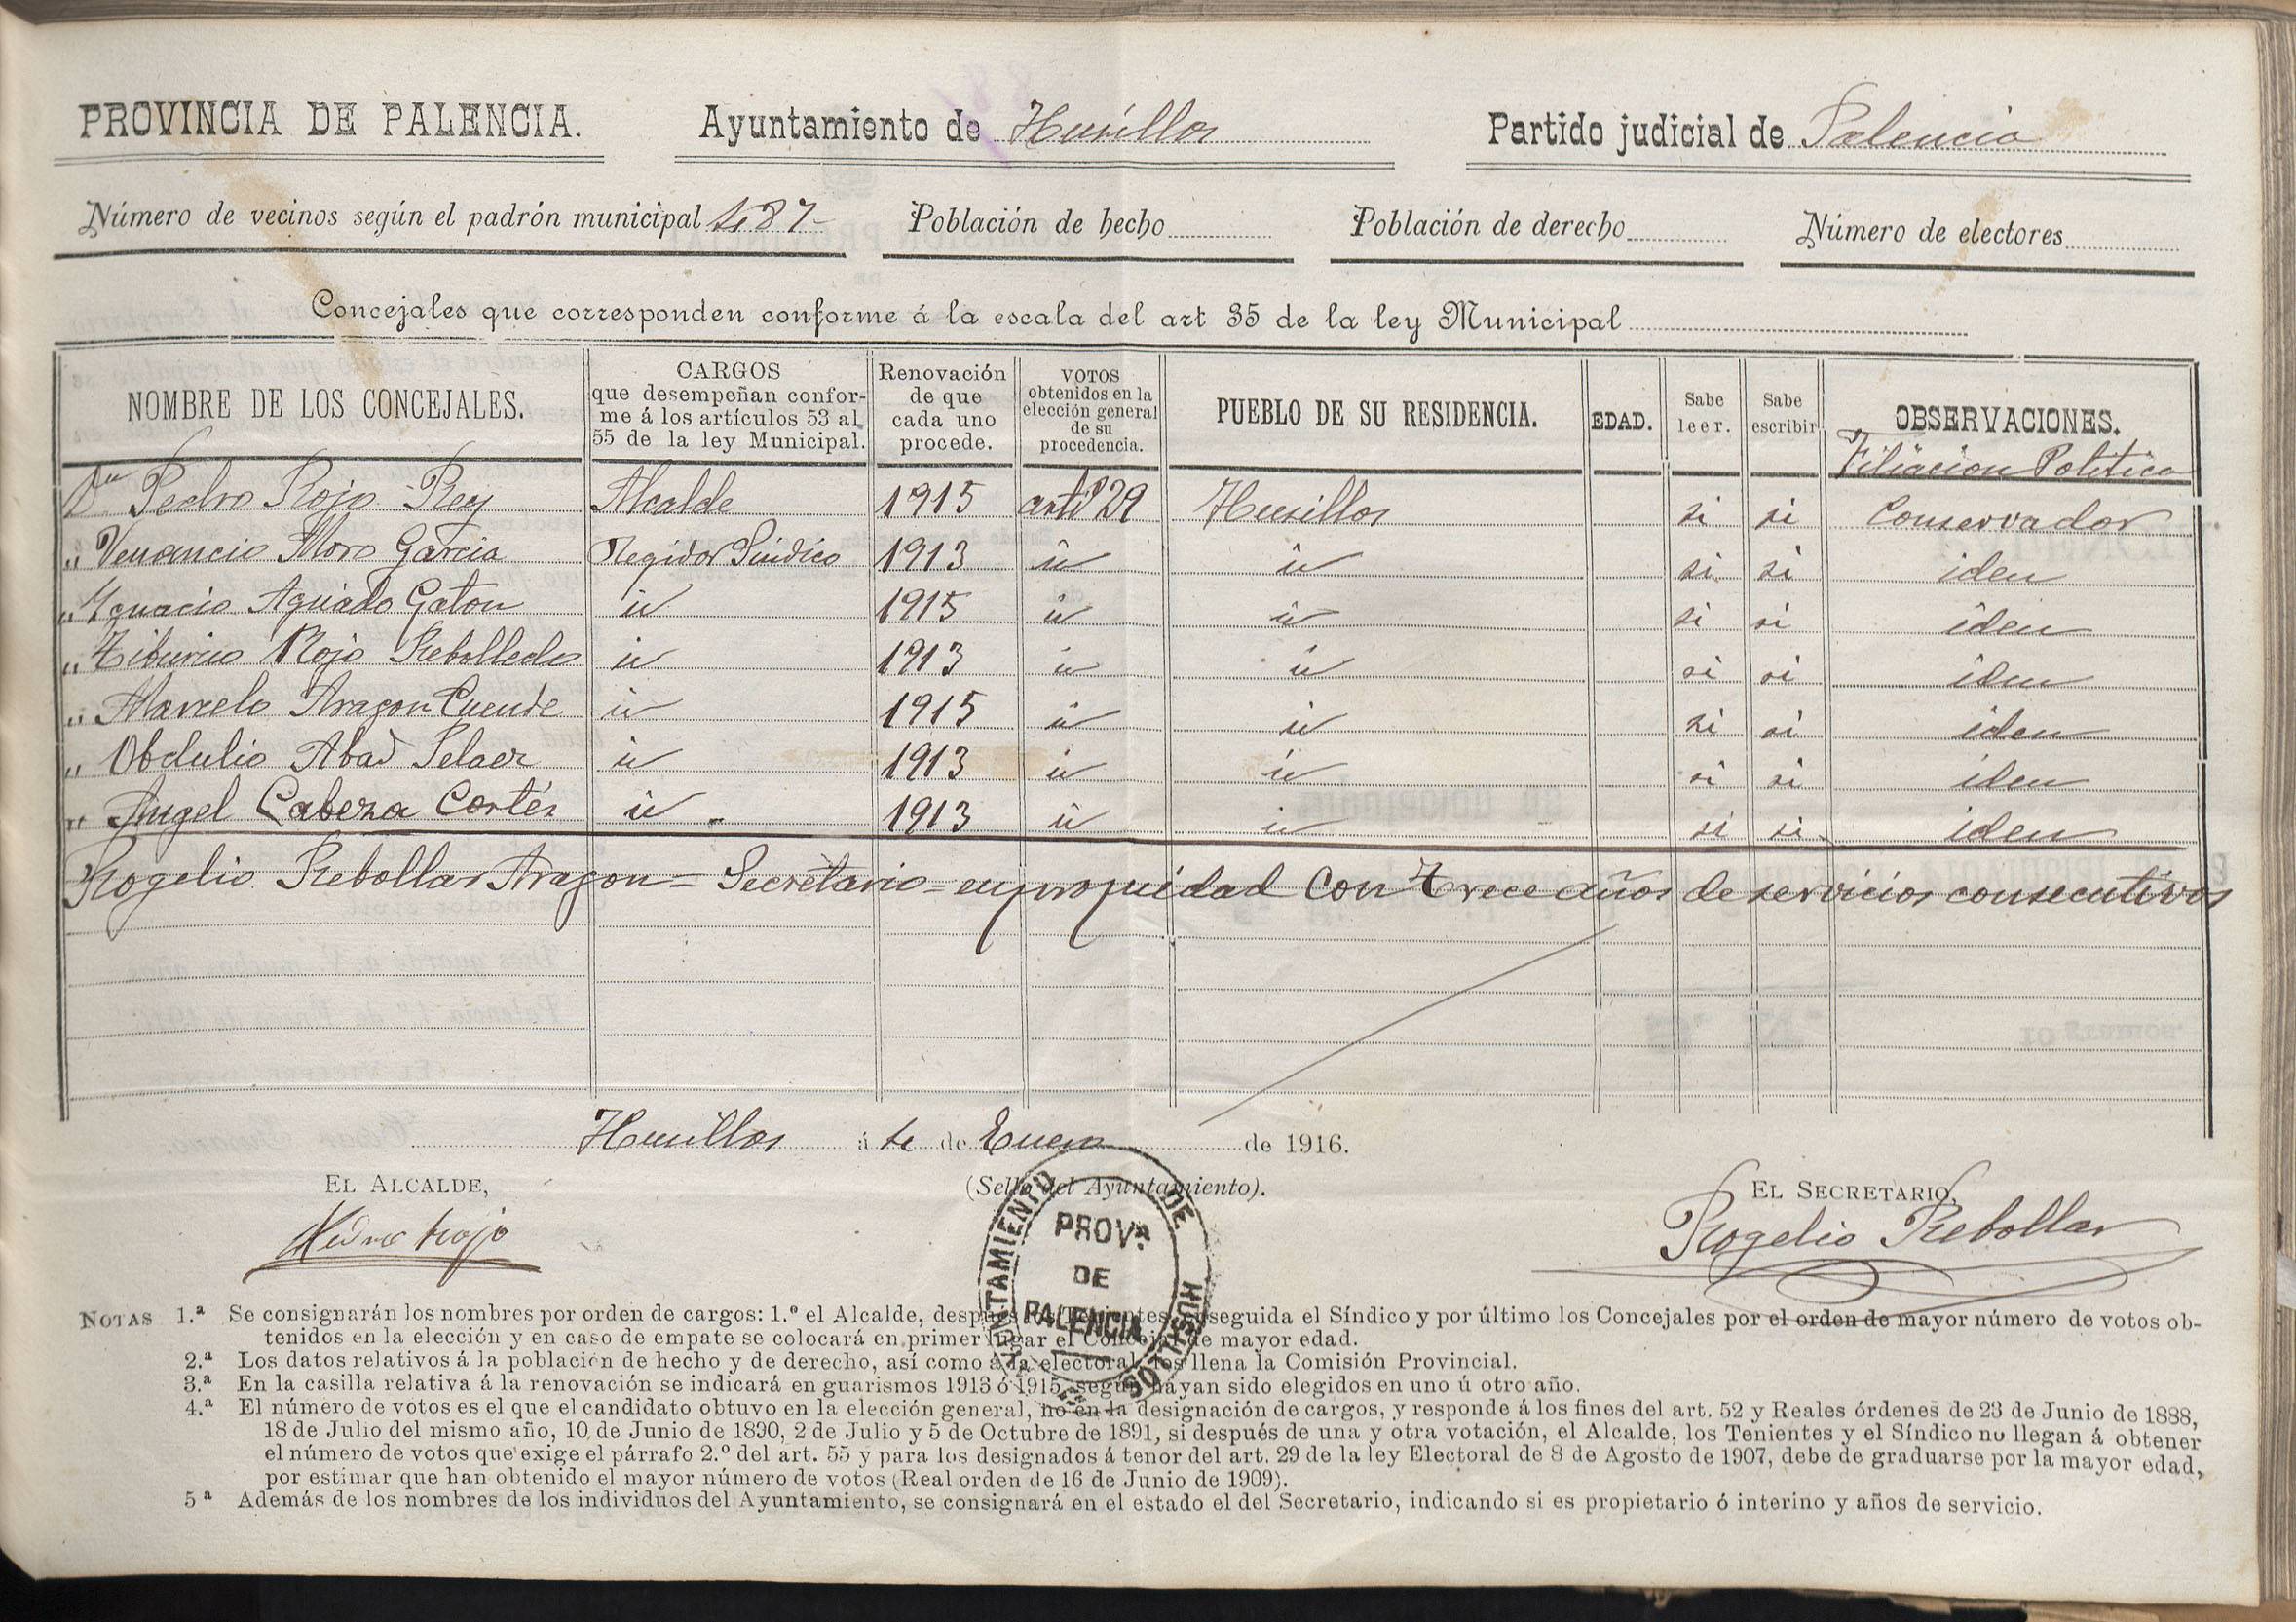 PROVINCIA DE PALENCIA. Ayuntamiento de Husillos Partido judicial de Palencia
Número de vecinos según el padrón municipal 487 Población de hecho Población de derecho Número de electores
Concejales que corresponden conforme á la escala del art 35 de la ley Municipal
NOMBRE DE LOS CONCEJALES. CARGOS que desempeñan confor- me á los artículos 53 al 55 de la ley Municipal. Renovación de que cada uno procede. VOTOS obtenidos en la elección general de su procedencia. PUEBLO DE SU RESIDENCIA. EDAD. Sabe leer. Sabe escribir OBSERVACIONES.
Filiacion Politica
Dn Pedro Rojo Rey Alcalde 1915 artº 29 Husillos si si Conservador
" Venancio Moro Garcia Regidor Sindico 1913 id id si si iden
" Ygnacio Aguado Gaton id 1915 id id si si iden
" Tiburcio Rojo Rebolledo id 1913 id id si si iden
" Marcelo Aragon Puente id 1915 id id si si iden
" Obdulio Abad Pelaez id 1913 id id si si iden
" Angel Cabeza Cortés id 1913 id id si si iden
Rogelio Rebollar Aragon = Secretario = en propiedad con trece años de servicios consecutivos
Husillos á 4 de Enero de 1916.
EL ALCALDE, (Sello del Ayuntamiento). EL SECRETARIO,
Pedro Rojo Rogelio Rebollar
AYUNTAMIENTO DE HUSILLOS
PROVª
DE
PALENCIA
NOTAS 1.ª Se consignarán los nombres por orden de cargos: 1.º el Alcalde, después los Tenientes, enseguida el Síndico y por último los Concejales por el orden de mayor número de votos ob-
tenidos en la elección y en caso de empate se colocará en primer lugar el Concejal de mayor edad.
2.ª Los datos relativos á la población de hecho y de derecho, así como á la electoral, los llena la Comisión Provincial.
3.ª En la casilla relativa á la renovación se indicará en guarismos 1913 ó 1915, según hayan sido elegidos en uno ú otro año.
4.ª El número de votos es el que el candidato obtuvo en la elección general, no en la designación de cargos, y responde á los fines del art. 52 y Reales órdenes de 23 de Junio de 1888,
18 de Julio del mismo año, 10 de Junio de 1890, 2 de Julio y 5 de Octubre de 1891, si después de una y otra votación, el Alcalde, los Tenientes y el Síndico no llegan á obtener
el número de votos que exige el párrafo 2.º del art. 55 y para los designados á tenor del art. 29 de la ley Electoral de 8 de Agosto de 1907, debe de graduarse por la mayor edad,
por estimar que han obtenido el mayor número de votos (Real orden de 16 de Junio de 1909).
5ª Además de los nombres de los individuos del Ayuntamiento, se consignará en el estado el del Secretario, indicando si es propietario ó interino y años de servicio.